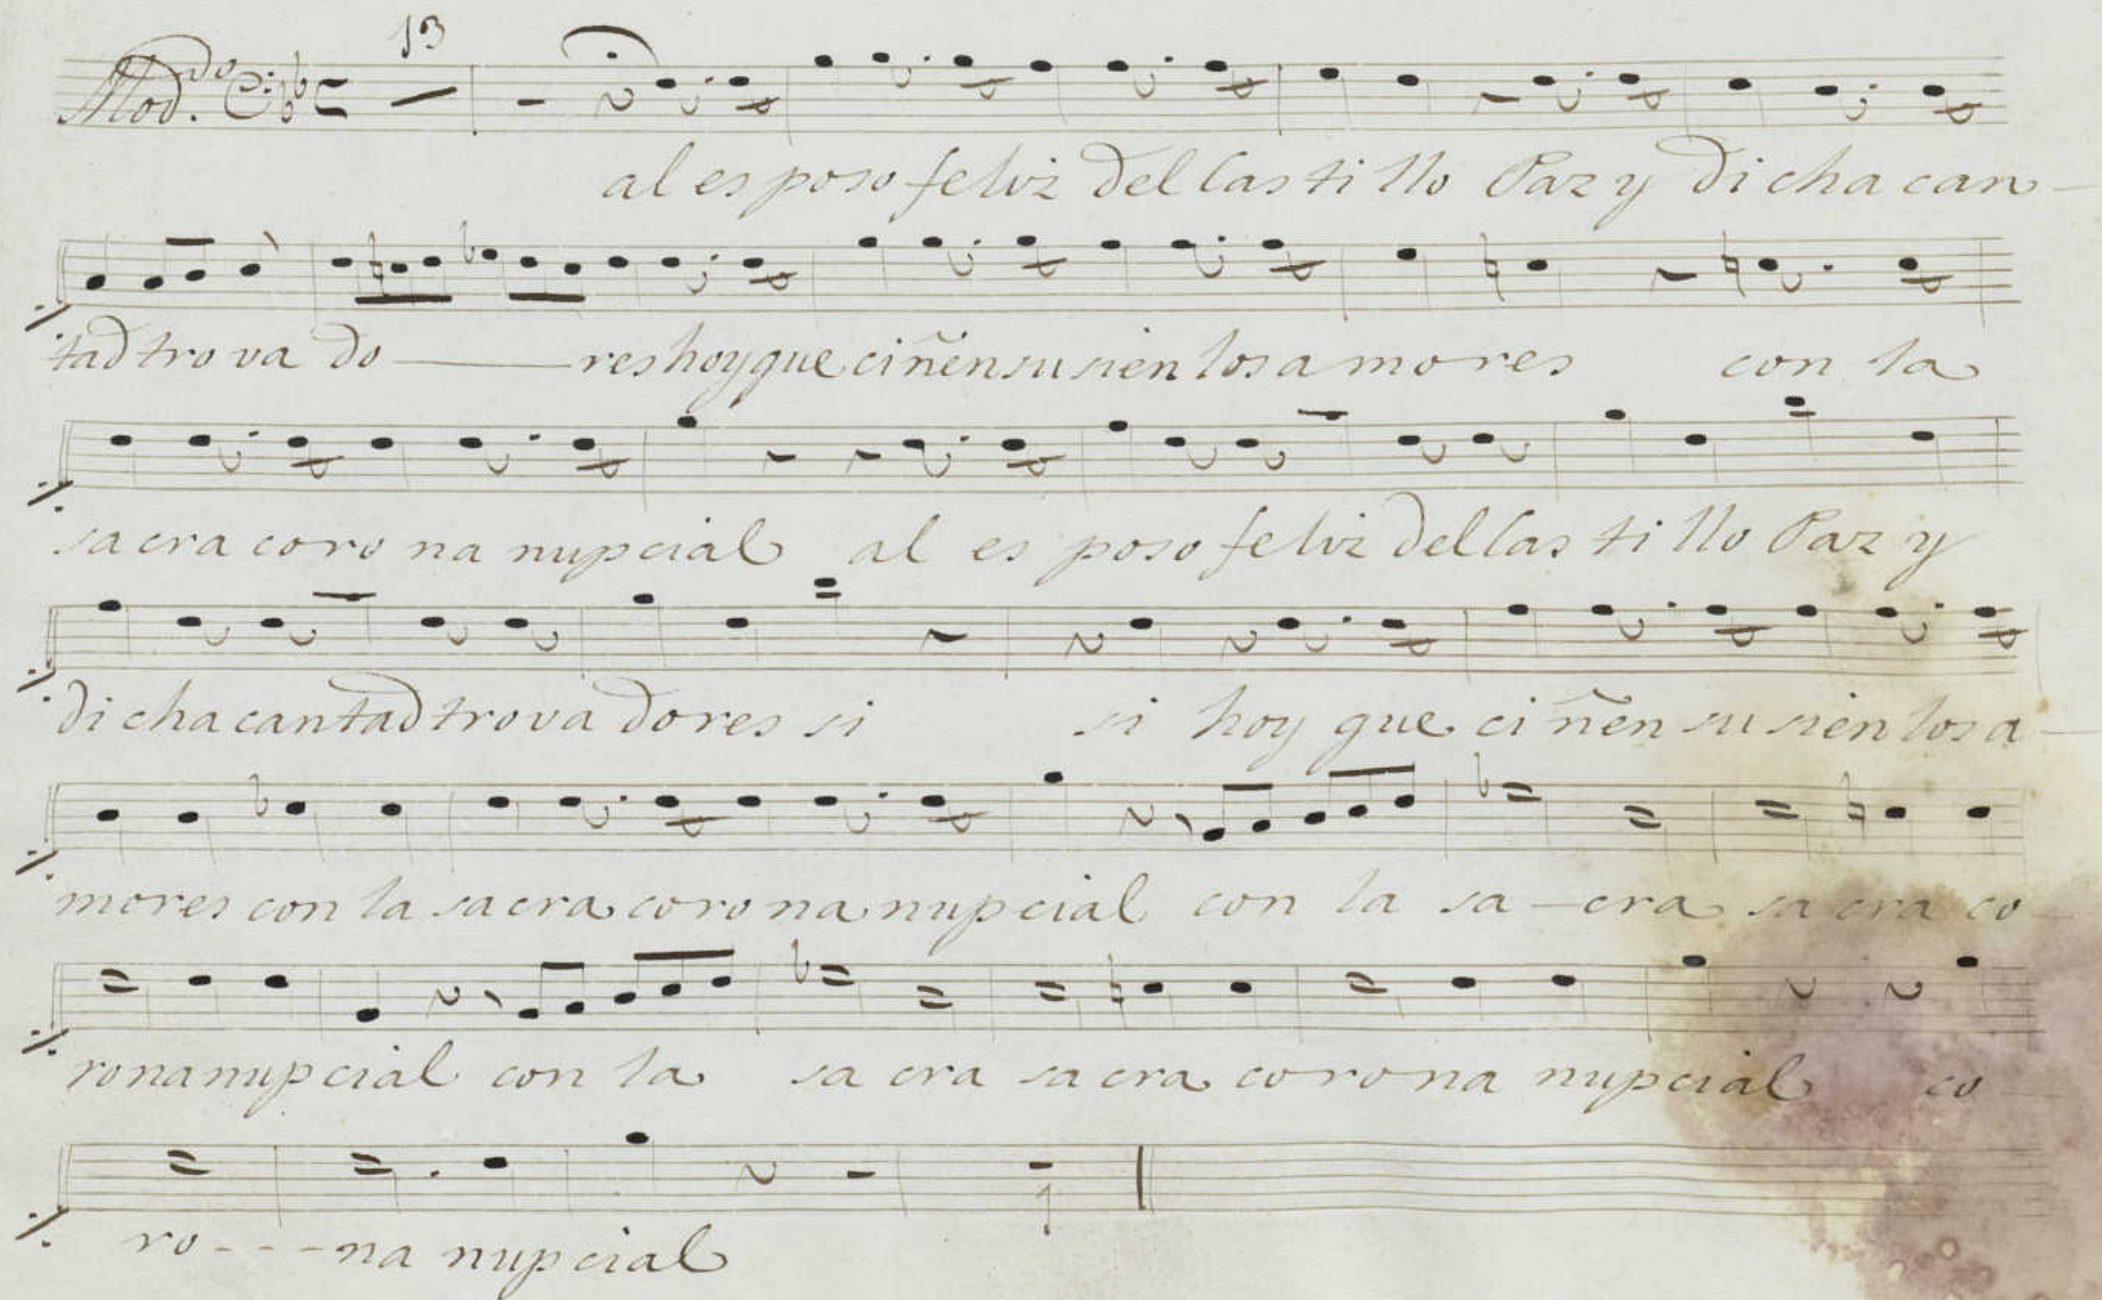 13
Mod.do
al es poso feliz del Cas ti llo Paz y di cha can-
tad tro va do——res hoy que ciñen su sien los a mo res con la
sa cra coro na nupcial al es poso feliz del Cas ti llo Paz y
di cha cantad trova dores si si hoy que ci ñen su sien los a-
mores con la sa cra coro na nupcial con la sa-cra sa cra co-
rona nupcial con la sa cra sa cra co ro na nupcial co-
ro---na nupcial